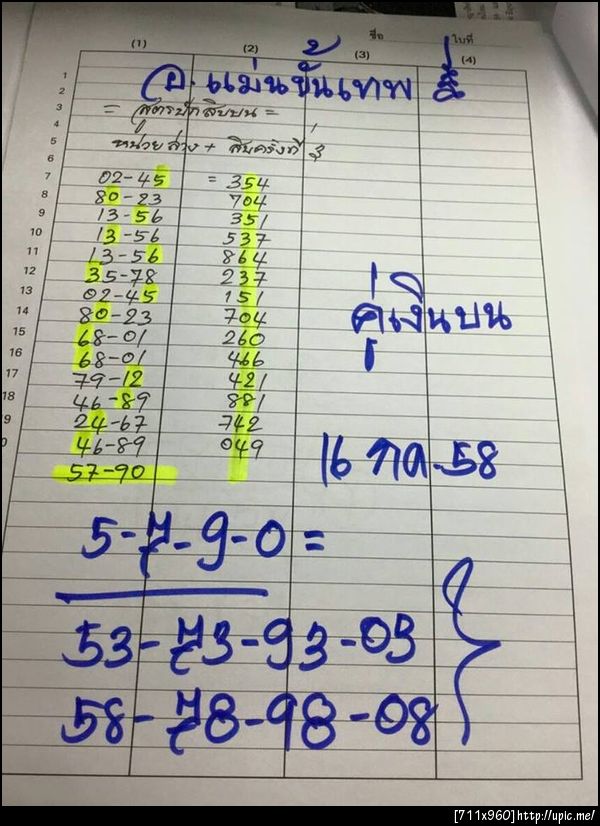 ชื่อ ใบที่
(1) (2) (3) (4)
อ. แม่นขั้นเทพ
= สูตรปักสิบบน =
หน่วยล่าง + สิบครั้งที่
1
2
3
4
5
6
7 02-45 = 354
8 80-23 704
9 13-56 351
10 13-56 537
11 13-56 864
12 35-78 237
13 02-45 151
14 80-23 704
15 68-01 260
16 68-01 466
17 79-12 421
18 46-89 881
19 24-67 742
46-89 049
57-90
คู่เงินบน
16 กค. 58
5-7-9-0 =
53-73-93-03
58-78-98-08
[711x960]http://upic.me/